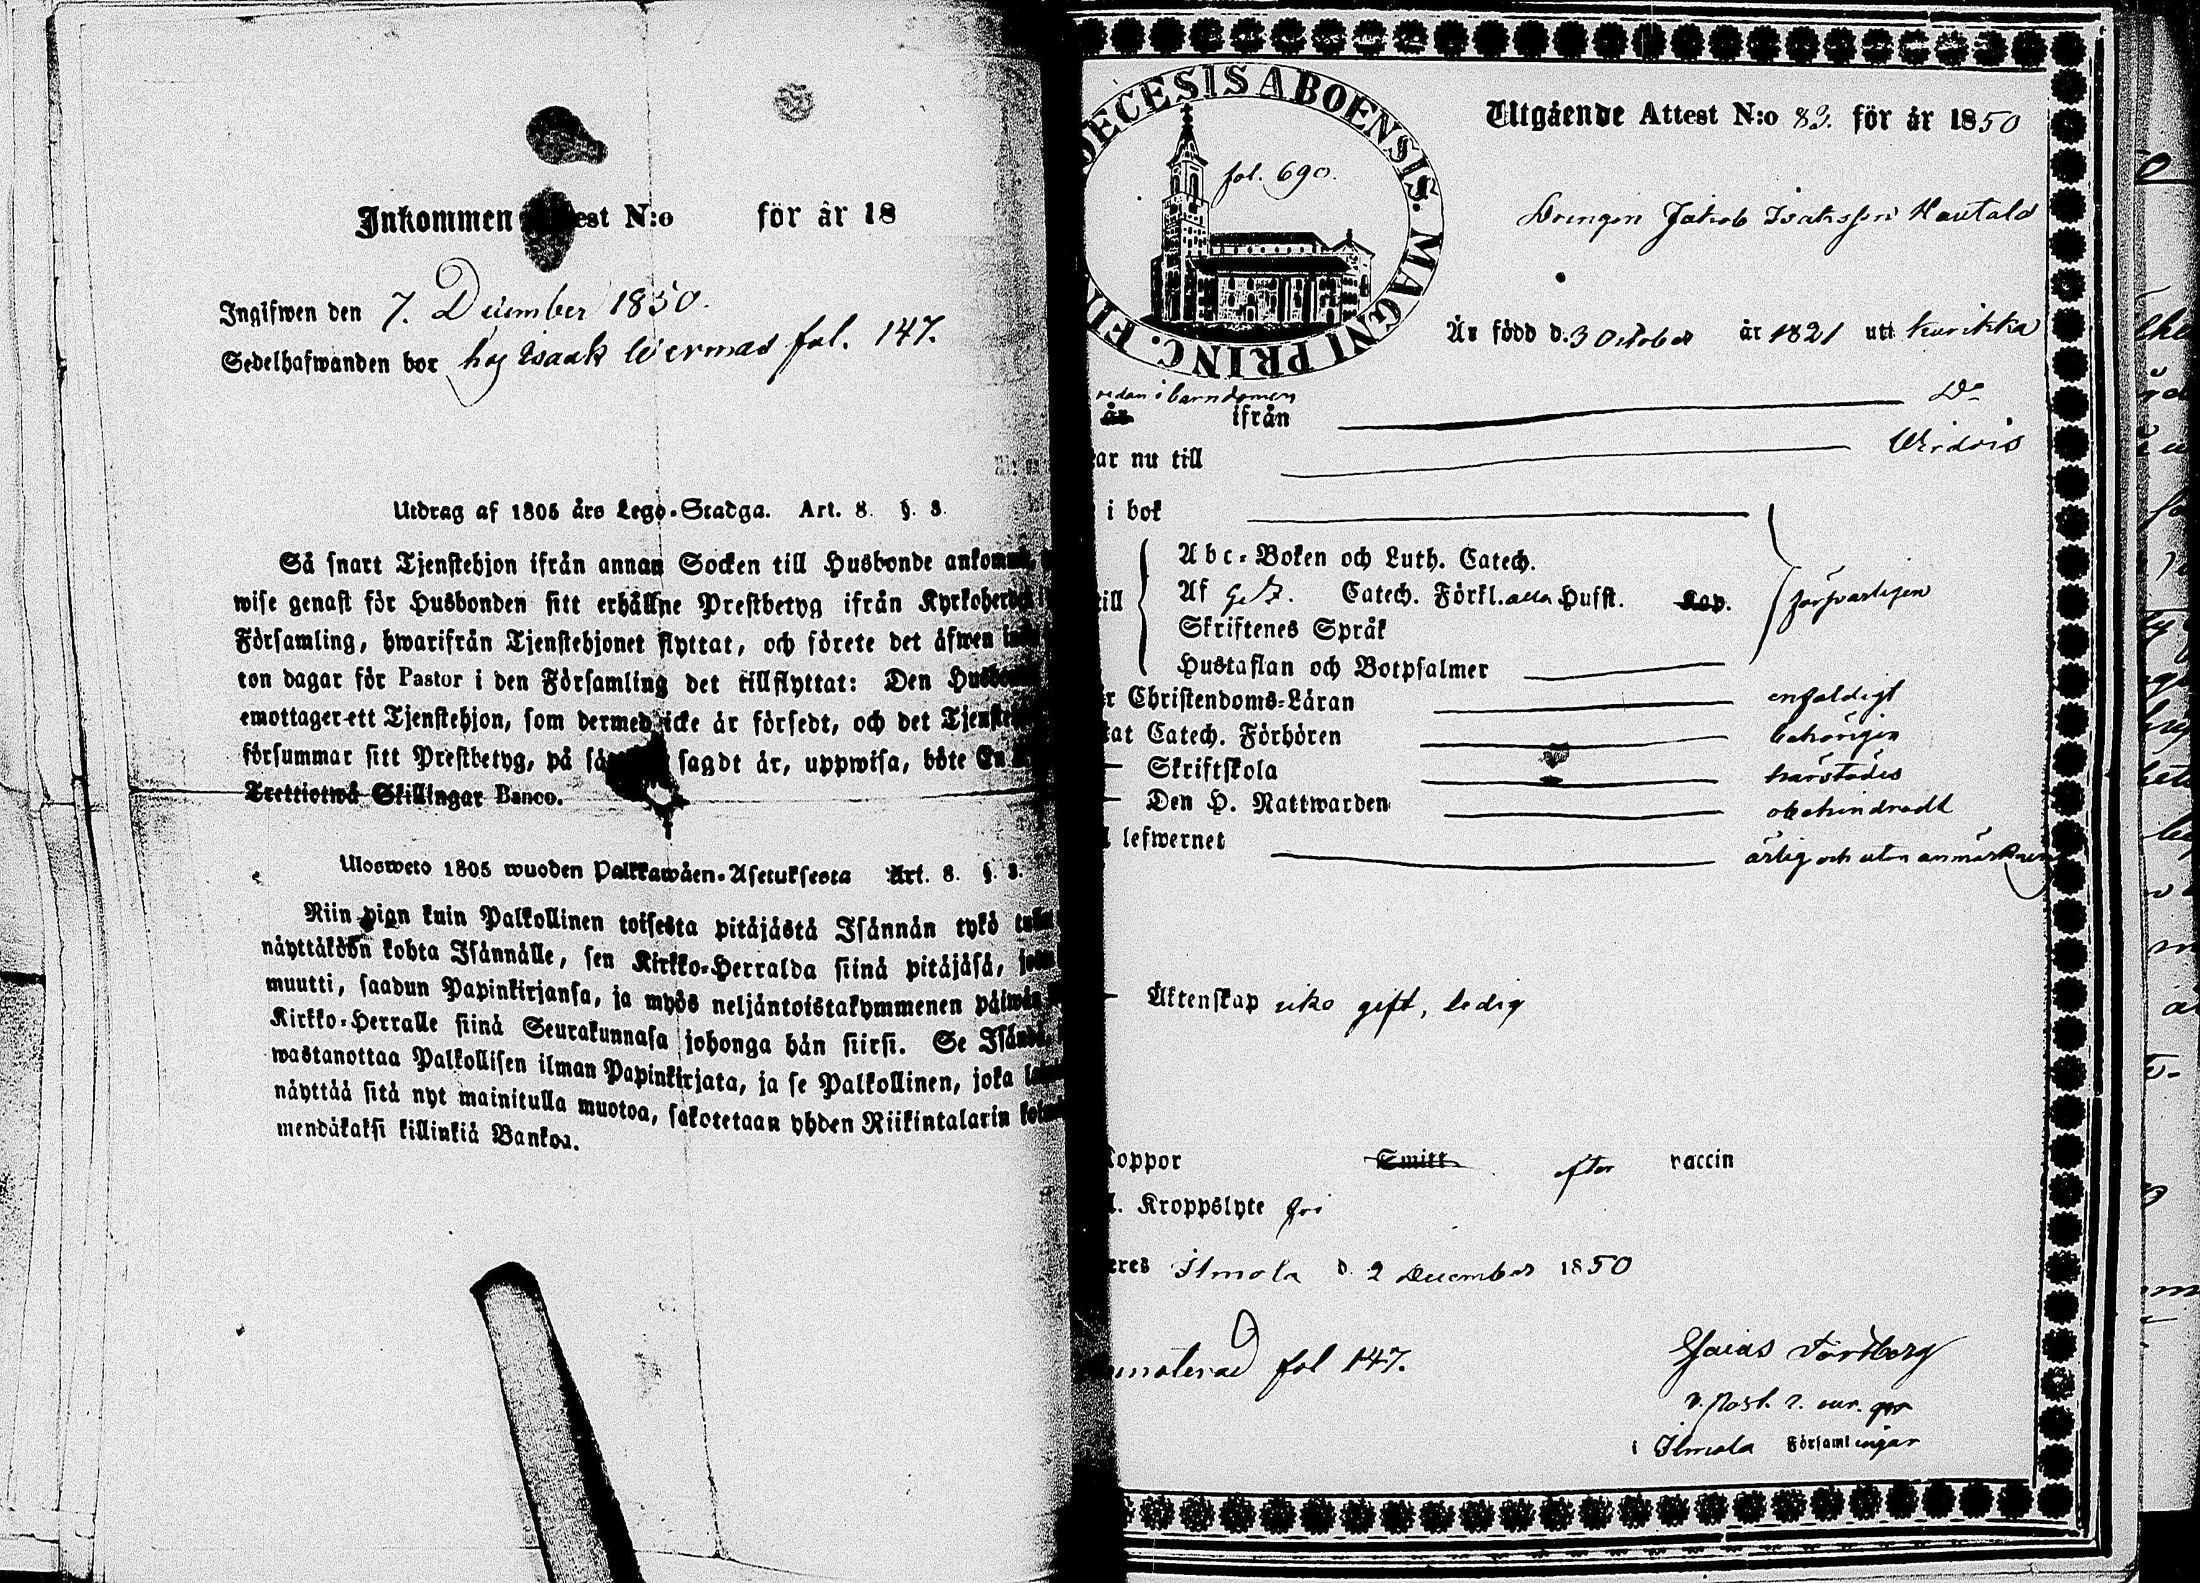 Inkommen Attest N:o för år 18
Ingifwen den 7. December 1850.
Sedelhafwanden bor hos Isaak fol. 147.
Utdrag af 1805 års Lego-Stadga. Art. 8. §. 8.
Så snart Tjenstehjon ifrån annan Socken till Husbonde
wise genast för Husbonden sitt erhållne Prestbetyg ifrån
Församling, hwarifrån Tjenstehjonet flyttat, och förete det äfwen
ton dagar för Pastor i den Församling det tillflyttat: Den
emottager ett Tjenstehjon, som dermed icke är försedt, och det
försummar sitt Prestbetyg, på sagdt är, uppwisa, böte En
Trettiotwå Skillingar Banco.
Ulosweto 1805 wuoden Palkkawäen-Asetuksesta Art. 8. §. 8.
Niin pian kuin Palkollinen toisesta pitäjästä Isännän tykö
näyttäköön kohta Isännälle, sen Kirkko-Herralda siinä pitäjäsä,
muutti, saadun Papinkirjansa, ja myös neljäntoistakymmenen
Kirkko-Herralle siinä Seurakunnasa johonga hän siirsi. Se
wastanottaa Palkollisen ilman Papinkirjata, ja se Palkollinen, joka
näyttää sitä nyt mainitulla muotoa, sakotetaan yhden Riikintalarin
mendäkaksi killinkiä Bankoa.
DECESIS ABOENSIS. MAGNI PRINC. FI
fol. 690.
Utgående Attest N:o 83. för år 1850
Drengen Jakob Isaksson
Är född d. 3 October år 1821 uti Kurikka
redan i barndomen
år ifrån D:o
ar nu till Virdois
i bok
Abc-Boken och Luth. Catech.
till Af Catech. Förkl. alla Husst. Kap. försvarligen
Skriftenes Språk
Hustaflan och Botpsalmer
r Christendoms-Läran enfaldigt
at Catech. Förhören behörigen
Skriftskola härstädes
Den H. Nattwarden obehindradt
lefwernet ärlig och utan anmärkning
Äktenskap icke gift, ledig
koppor Smitt efter vaccin
l. Kroppslyte fri
eres Ilmola d. 2 December 1850
fol 147.
Esaias
v. Past.
i Ilmola Församlingar